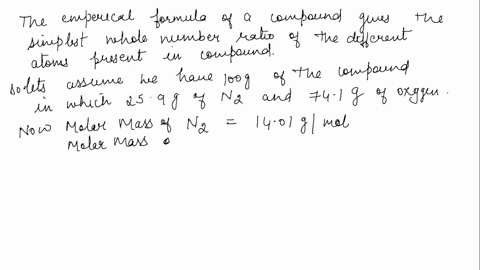 The emperical formula of a compound gives the
simplest whole number ratio of the different
atoms present in compound.
so lets assume we have 100g of the compound
in which 25.9 g of N2 and 74.1 g of oxygen.
Now Molar Mass of N2 = 14.01 g/mol
Molar Mass o